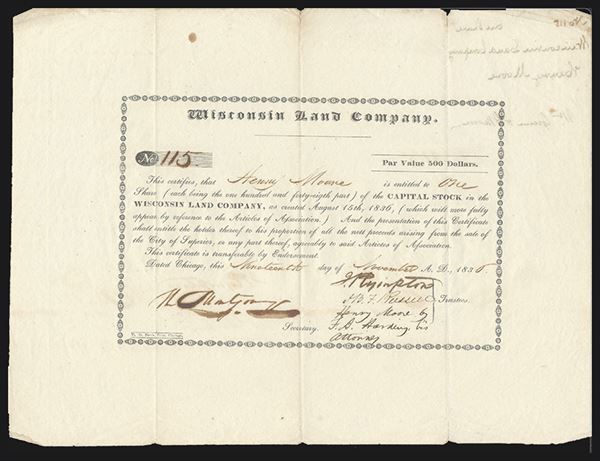 Wisconsin Land Company.
No 115
Par Value 500 Dollars.
This certifies, that Henry Moore is entitled to One
Share (each being the one hundred and forty-sixth part) of the CAPITAL STOCK in the
WISCONSIN LAND COMPANY, as created August 15th, 1836, (which will more fully
appear by reference to the Articles of Association.) And the presentation of this Certificate
shall entitle the holder thereof to his proportion of all the nett proceeds arising from the sale of
the City of Superior, or any part thereof, agreeably to said Articles of Association.
This certificate is transferable by Endorsement.
Dated Chicago, this Nineteenth day of November A. D., 1836
Trustees.
Henry Moore by
Secretary. his
Attorney
No 115
One Share
Wisconsin Land Company
Henry Moore